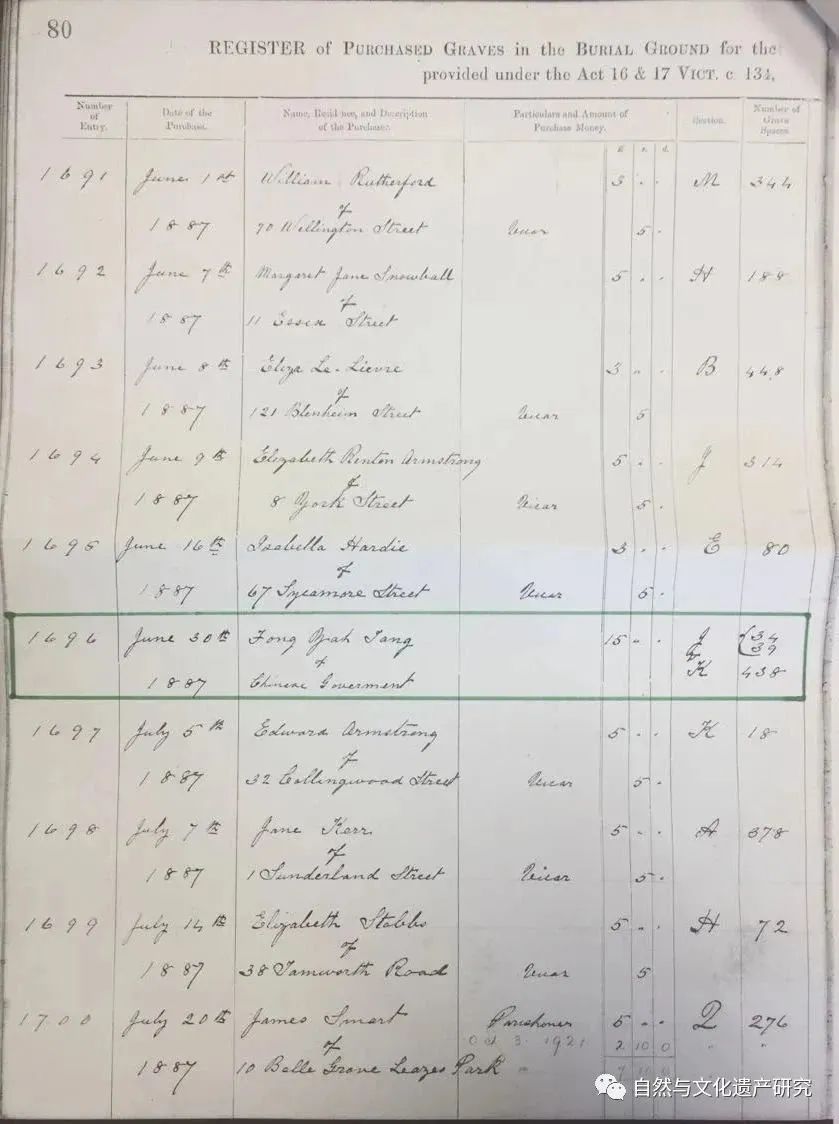 80
REGISTER of PURCHASED GRAVES in the BURIAL GROUND for the
provided under the Act 16 & 17 VICT. c 134,
Number of Entry. Date of the Purchase. Name, Residence, and Description of the Purchaser. Particulars and Amount of Purchase Money. Section. Number of Grave Spaces
£ s. d.
1691 June 1st William Rutherford 3 " " M 344
of
1887 70 Wellington Street Vicar 5 "
1692 June 7th Margaret Jane Snowball 5 " " H 188
of
1887 11 Essex Street
1693 June 8th Eliza Le-Lievre 3 " " B 448
of
1887 121 Blenheim Street Vicar 5
1694 June 9th Elizabeth Renton Armstrong 5 " " J 314
of
1887 8 York Street Vicar 5 "
1695 June 16th Isabella Hardie 3 " " E 80
of
1887 67 Sycamore Street Vicar 5 "
1696 June 30th Fong Yah Tang 15 " " J 34
39
1887 Chinese Goverment K 438
1697 July 5th Edward Armstrong 5 " " K 18
of
1887 32 Collingwood Street Vicar 5 "
1698 July 7th Jane Kerr 5 " " A 378
of
1887 1 Sunderland Street Vicar 5 "
1699 July 14th Elizabeth Stobbs 5 " " H 72
of
1887 38 Tamworth Road Vicar 5
1700 July 20th James Smart Parishoner 5 " " Q 276
of Oct 3. 1921 2 10 0 " "
1887 10 Belle Grove Leazes Park " 7 10 0
自然与文化遗产研究